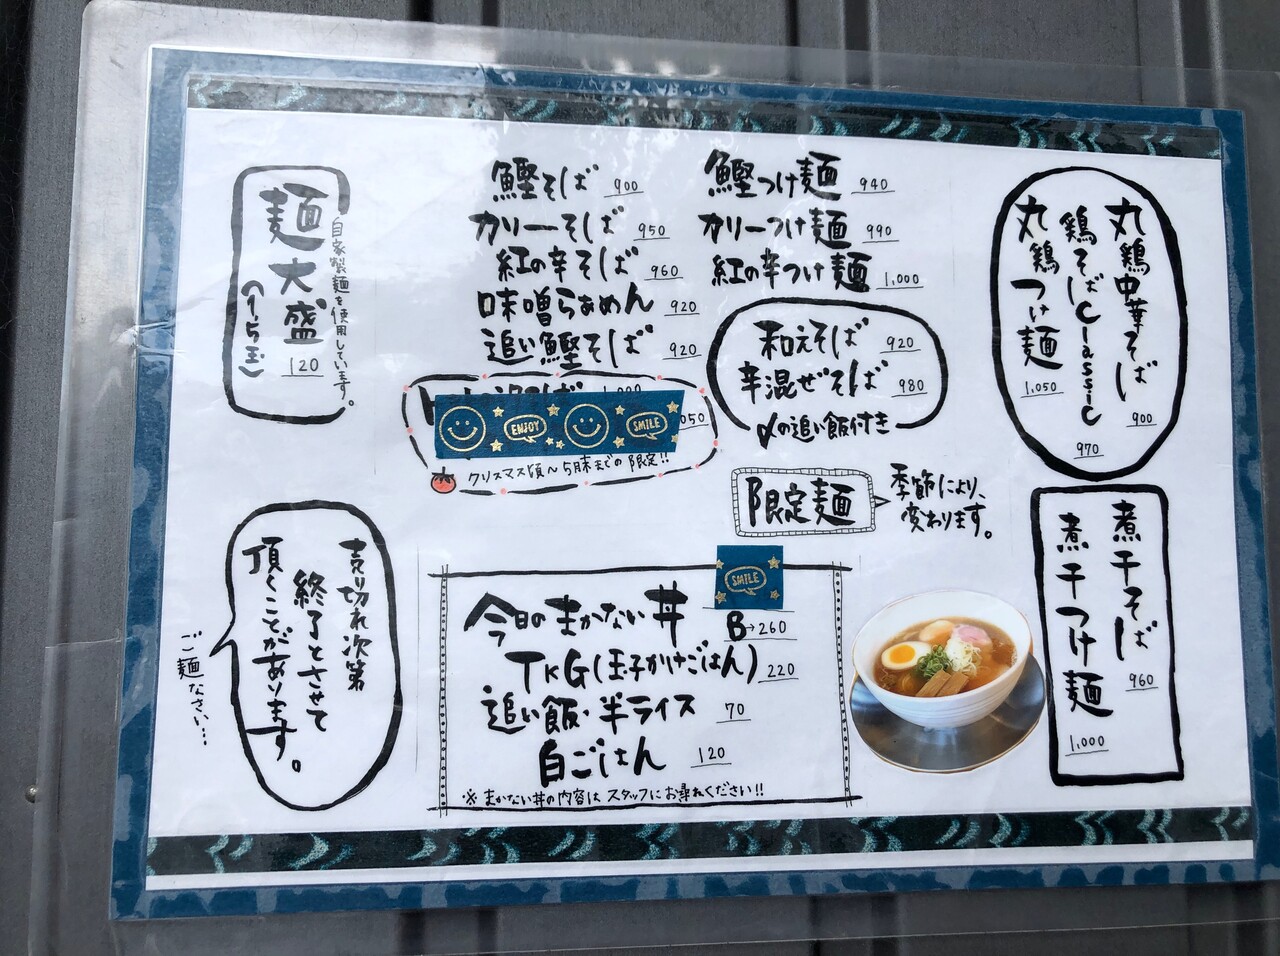 丸鶏中華そば 900
鶏そばclassic 970
丸鶏つけ麺 1,050
煮干そば 960
煮干つけ麺 1,000
鰹そば 900
カリーそば 950
紅の辛そば 960
味噌らぁめん 920
追い鰹そば 920
1,000
050
ENJOY SMILE
クリスマス頃〜5月末までの限定!!
鰹つけ麺 940
カリーつけ麺 990
紅の辛つけ麺 1,000
和えそば 920
辛混ぜそば 980
〆の追い飯付き
限定麺
季節により、
変わります。
麺大盛
(1.5玉)
120
自家製麺を使用しています。
SMILE
今日のまかない丼 B→260
TKG(玉子かけごはん) 220
追い飯・半ライス 70
白ごはん 120
※まかない丼の内容はスタッフにお尋ねください!!
売り切れ次第
終了とさせて
頂くことがあります。
ご麺なさい…